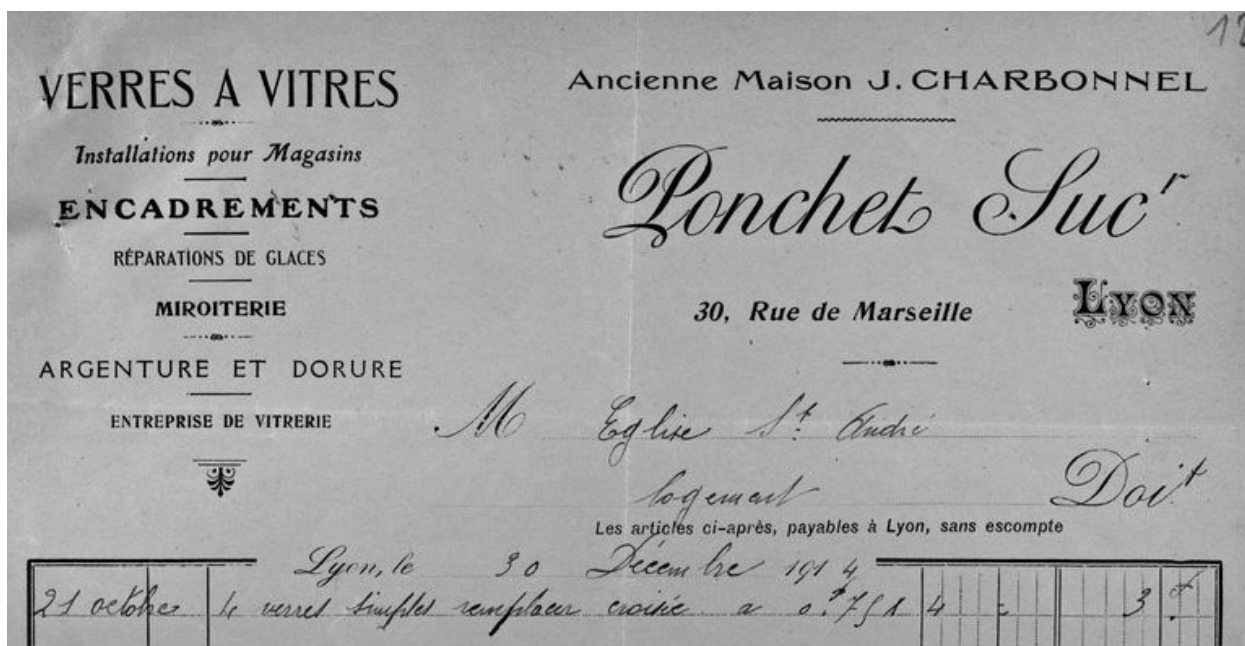 12
VERRES A VITRES
Installations pour Magasins
ENCADREMENTS
RÉPARATIONS DE GLACES
MIROITERIE
ARGENTURE ET DORURE
ENTREPRISE DE VITRERIE
Ancienne Maison J. CHARBONNEL
Ponchet Sucr
30, Rue de Marseille LYON
M Eglise St. André
logement Doit
Les articles ci-après, payables à Lyon, sans escompte
Lyon, le 30 Décembre 1914
21 octobre 4 verres simples remplacer croisée a 0.f75 4 = 3 f